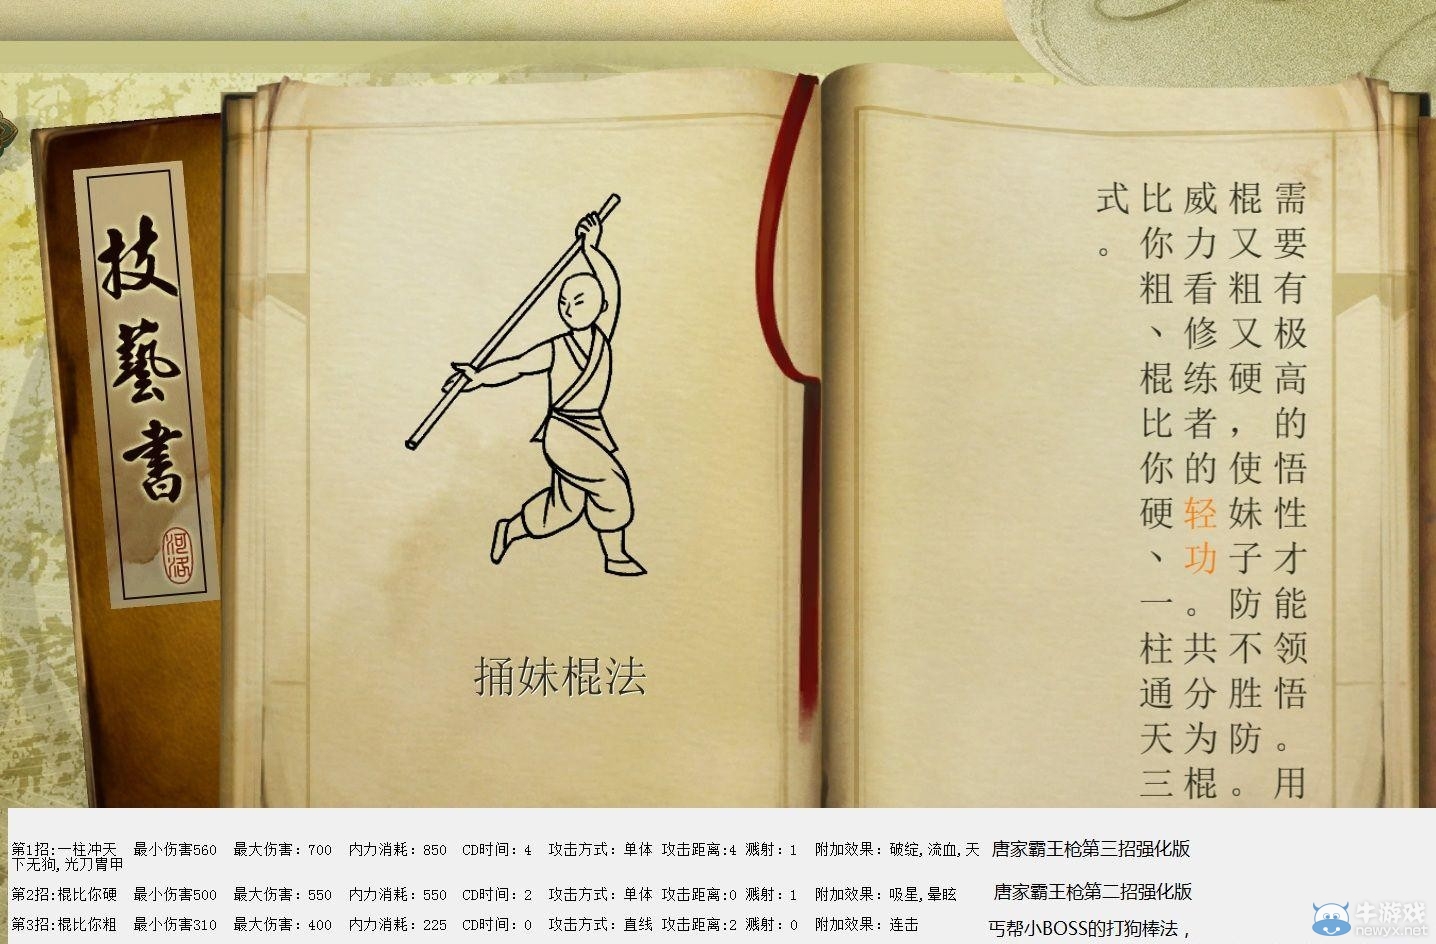 技藝書
河洛
捅妹棍法
需要有极高的悟性才能领悟。用
棍又粗又硬，使妹子防不胜防。
威力看修练者的轻功。共分为棍
比你粗、棍比你硬、一柱通天三
式。
第1招:一柱冲天 最小伤害560 最大伤害：700 内力消耗：850 CD时间：4 攻击方式：单体 攻击距离:4 溅射：1 附加效果：破绽,流血,天
下无狗,光刀胄甲
唐家霸王枪第三招强化版
第2招:棍比你硬 最小伤害500 最大伤害：550 内力消耗：550 CD时间：2 攻击方式：单体 攻击距离:0 溅射：1 附加效果：吸星,晕眩
唐家霸王枪第二招强化版
第3招:棍比你粗 最小伤害310 最大伤害：400 内力消耗：225 CD时间：0 攻击方式：直线 攻击距离:2 溅射：0 附加效果：连击
丐帮小BOSS的打狗棒法，
牛游戏
newyx.net